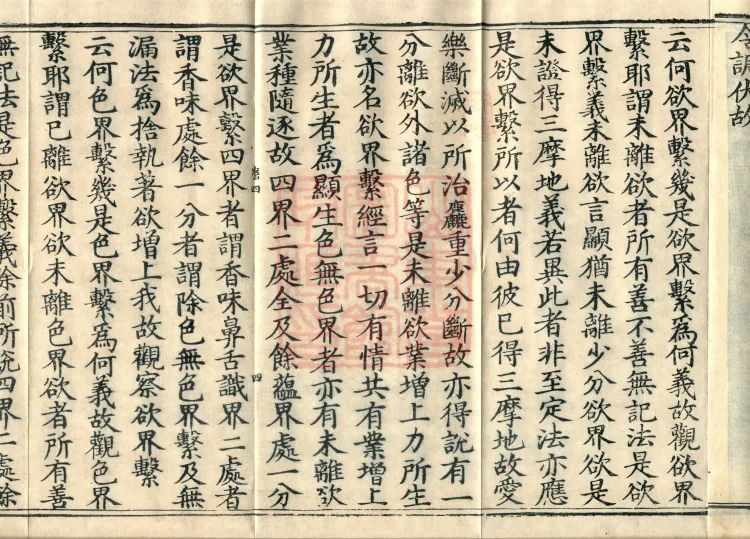 今調伏故
云何欲界繫幾是欲界繫為何義故觀欲界
繫耶謂未離欲者所有善不善無記法是欲
界繫義未離欲言顯猶未離少分欲界欲是
未證得三摩地義若異此者非至定法亦應
是欲界繫所以者何由彼已得三摩地故愛
樂斷滅以所治麤重少分斷故亦得說有一
分離欲外諸色等是未離欲業增上力所生
故亦名欲界繫經言一切有情共有業增上
力所生者為顯生色無色界者亦有未離欲
業種隨逐故四界二處全及餘蘊界處一分
是欲界繫四界者謂香味鼻舌識界二處者
謂香味處餘一分者謂除色無色界繫及無
漏法為捨執著欲增上我故觀察欲界繫
云何色界繫幾是色界繫為何義故觀色界
繫耶謂已離欲界欲未離色界欲者所有善
無記法是色界繫義除前所說四界二處餘
四